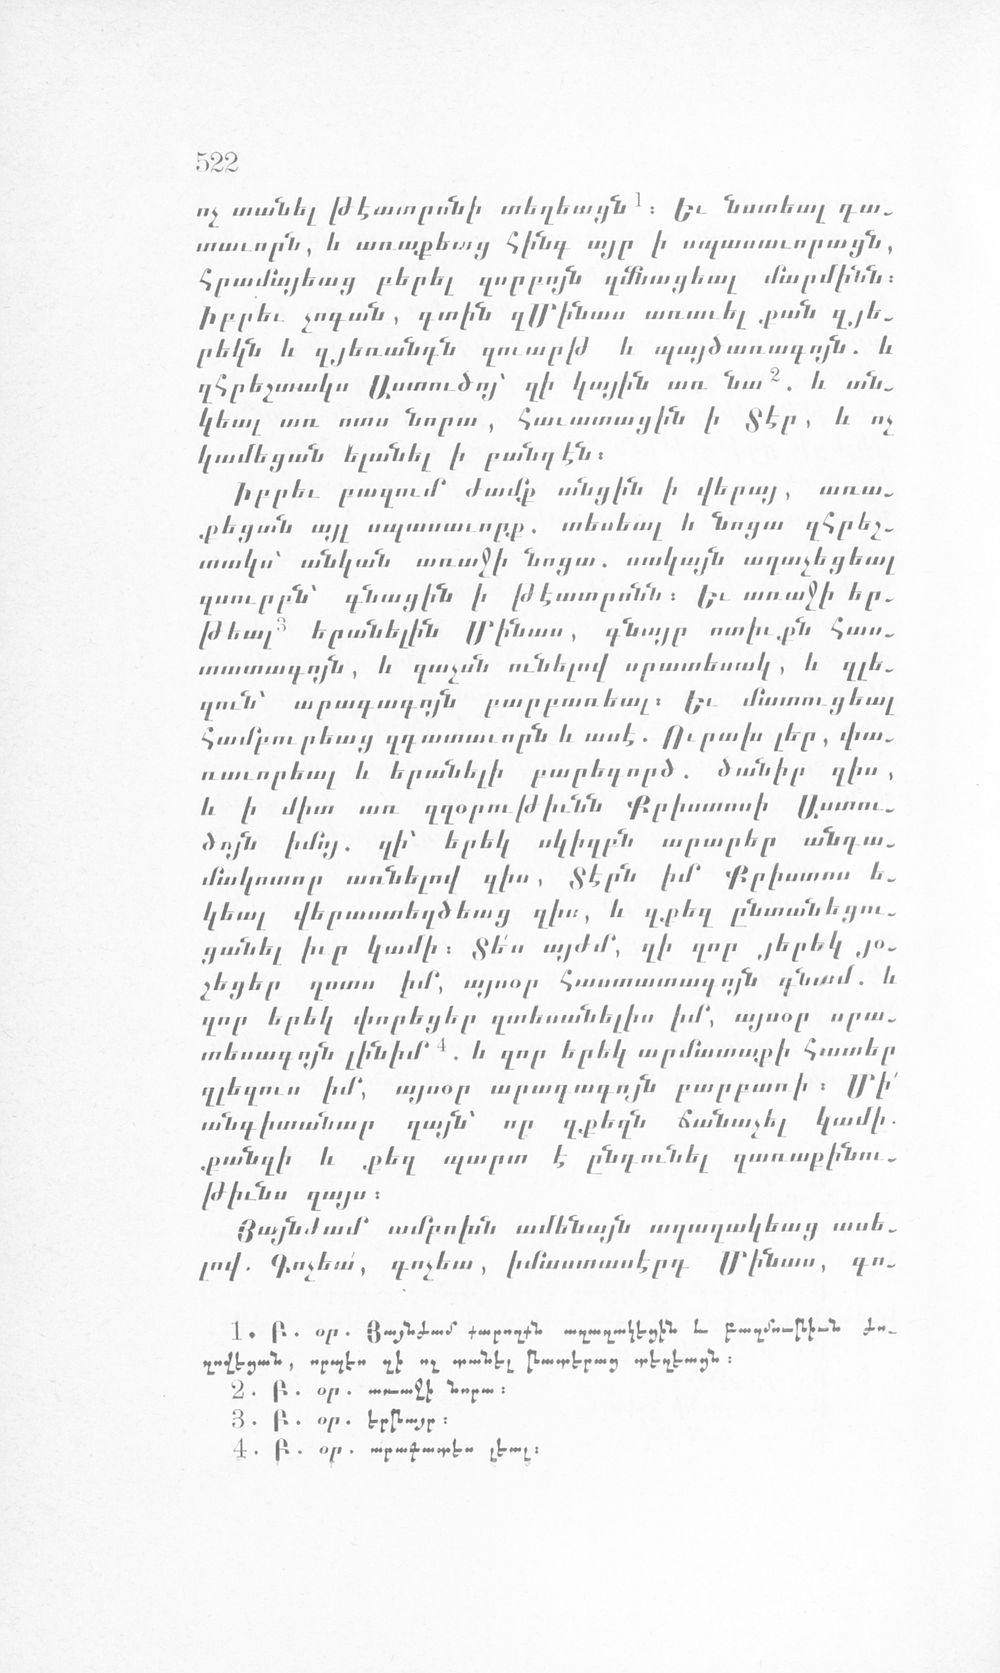 522
ոչ տանել թէատրոնի տեղեացն¹։ Եւ նստեալ դա-
տաւորն, և առաքեաց հինգ այր ի սպասաւորացն,
հրամայեաց բերել զսրբոյն զմնացեալ մարմինն։
Իբրեւ չոգան, գտին զՄինաս առաւել քան զյե-
րեկն և զյեռանդն զուարթ և պայծառագոյն. և
զհրեշտակս Աստուծոյ՝ զի կային առ նա². և ան-
կեալ առ ոտս նորա, հաւատացին ի Տէր, և ոչ
կամեցան ելանել ի բանդէն։
Իբրեւ բազում ժամք անցին ի վերայ, առա-
քեցան այլ սպասաւորք. տեսեալ և նոցա զհրեշ-
տակս՝ անկան առաջի նոցա. սակայն աղաչեցեալ
զսուրբն՝ գնացին ի թէատրոնն։ Եւ առաջի եր-
թեալ³ երանելին Մինաս, գնայր ոտիւքն հաս-
տատագոյն, և զաչսն ունելով սրատեսակ, և զլե-
զուն՝ արագագոյն բարբառեալ։ Եւ մատուցեալ
համբուրեաց զդատաւորն և ասէ. Ուրախ լեր, փա-
ռաւորեալ և երանելի բարեգործ. ծանիր զիս,
և ի միտ առ զզօրութիւնն Քրիստոսի Աստու-
ծոյն իմոյ. զի՝ երեկ սկիզբն արարեր անդա-
մակոտոր առնելով զիս, Տէրն իմ Քրիստոս ե-
կեալ վերաստեղծեաց զիս, և զքեզ ընտանեցու-
ցանել իւր կամի։ Տե՛ս այժմ, զի զոր յերեկ յօ-
շեցեր զոտս իմ, այսօր հաստատագոյն գնամ. և
զոր երեկ փորեցեր զտեսանելիս իմ, այսօր սրա-
տեսագոյն լինիմ⁴. և զոր երեկ արմատաքի հատեր
զլեզուս իմ, այսօր արագագոյն բարբառի։ Մի՛
անգիտանար զայն՝ որ զքեզն ճանաչել կամի.
քանզի և քեզ պարտ է ընդունել զառաքինու-
թիւնս զայս։
Յայնժամ ամբոխն ամենայն աղաղակեաց ասե-
լով. Գոչեա՛, գոչեա, իմաստասէրդ Մինաս, գո-
1. Բ. օր. Յայնժամ քարոզքն աղաղակեցին և բազմութիւն ժո-
ղովեցան, որպէս զի ոչ տանել թատերաց տեղեացն։
2. Բ. օր. առաջի նորա։
3. Բ. օր. երթայր։
4. Բ. օր. արագապէս լեալ։